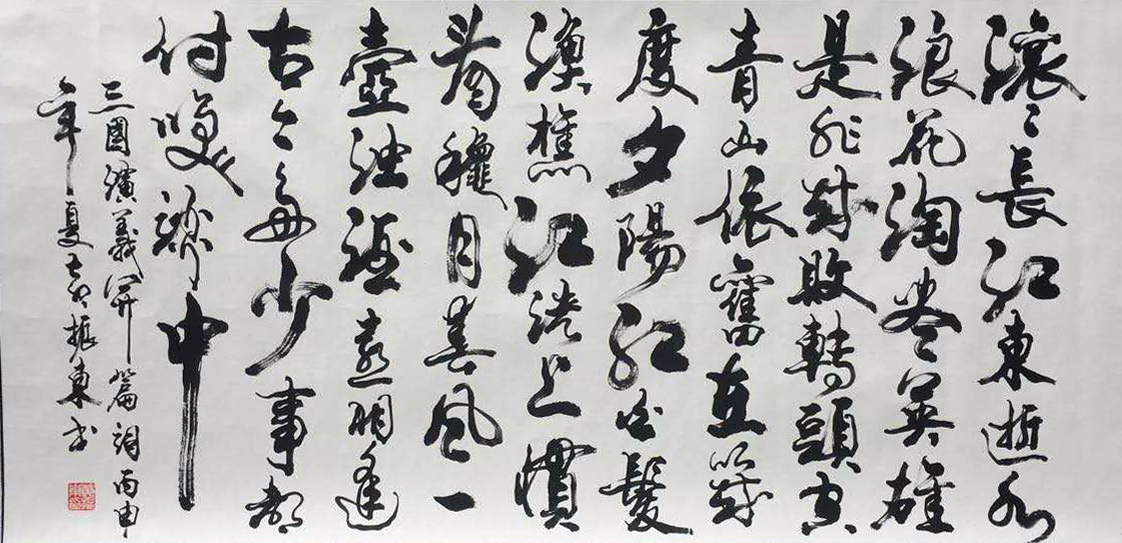 滚〻長江東逝水
浪花淘尽英雄
是非成敗轉頭空
青山依舊在幾
度夕陽紅白髮
漁樵江渚上慣
看穐月春風一
壺浊酒喜相逢
古今多少事都
付咲談中
三國演義開篇詞丙申
年夏振東书